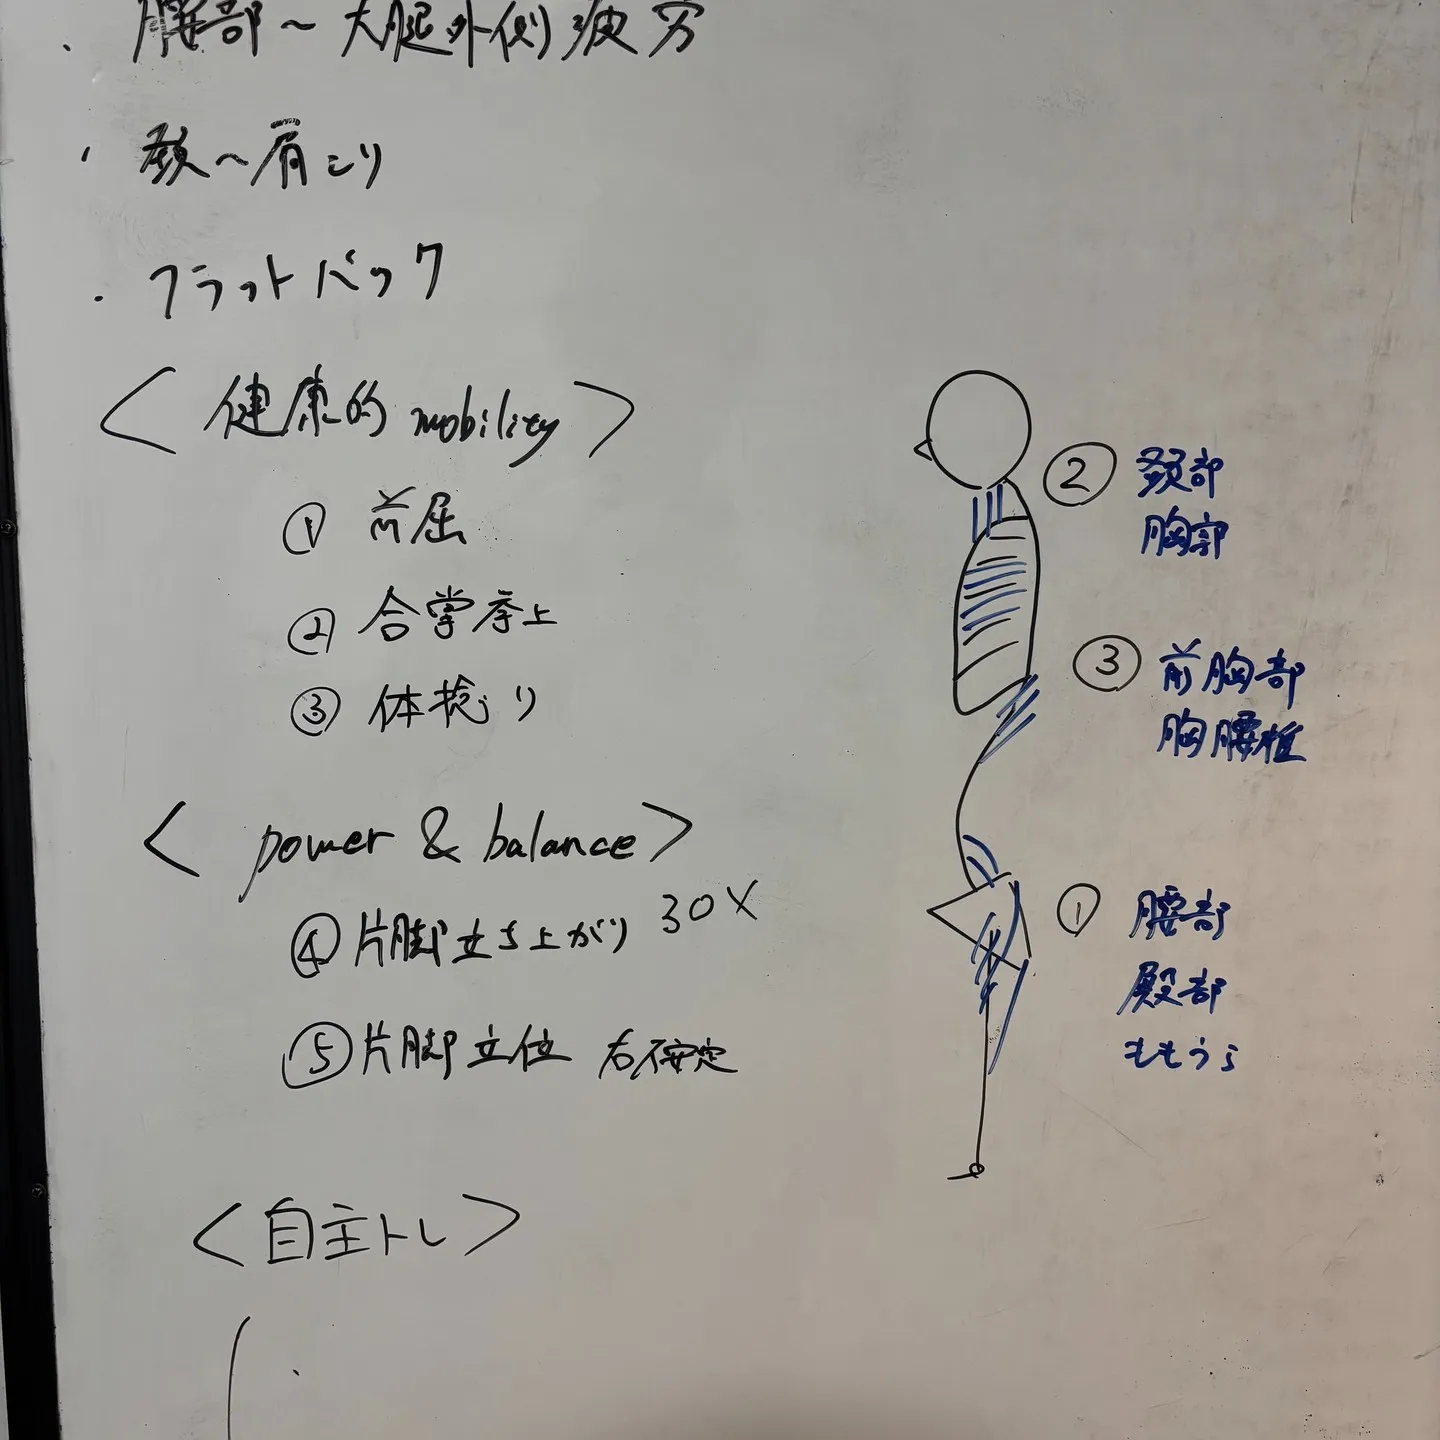 ・腰部～大腿外側疲労
・頚～肩こり
・フラットバック
＜健康的 mobility＞
① 前屈
② 合掌挙上
③ 体捻り
＜power & balance＞
④ 片脚立ち上がり 30×
⑤ 片脚立位 右不安定
＜自主トレ＞
② 頚部
胸郭
③ 前胸部
胸腰椎
① 腰部
殿部
ももうら